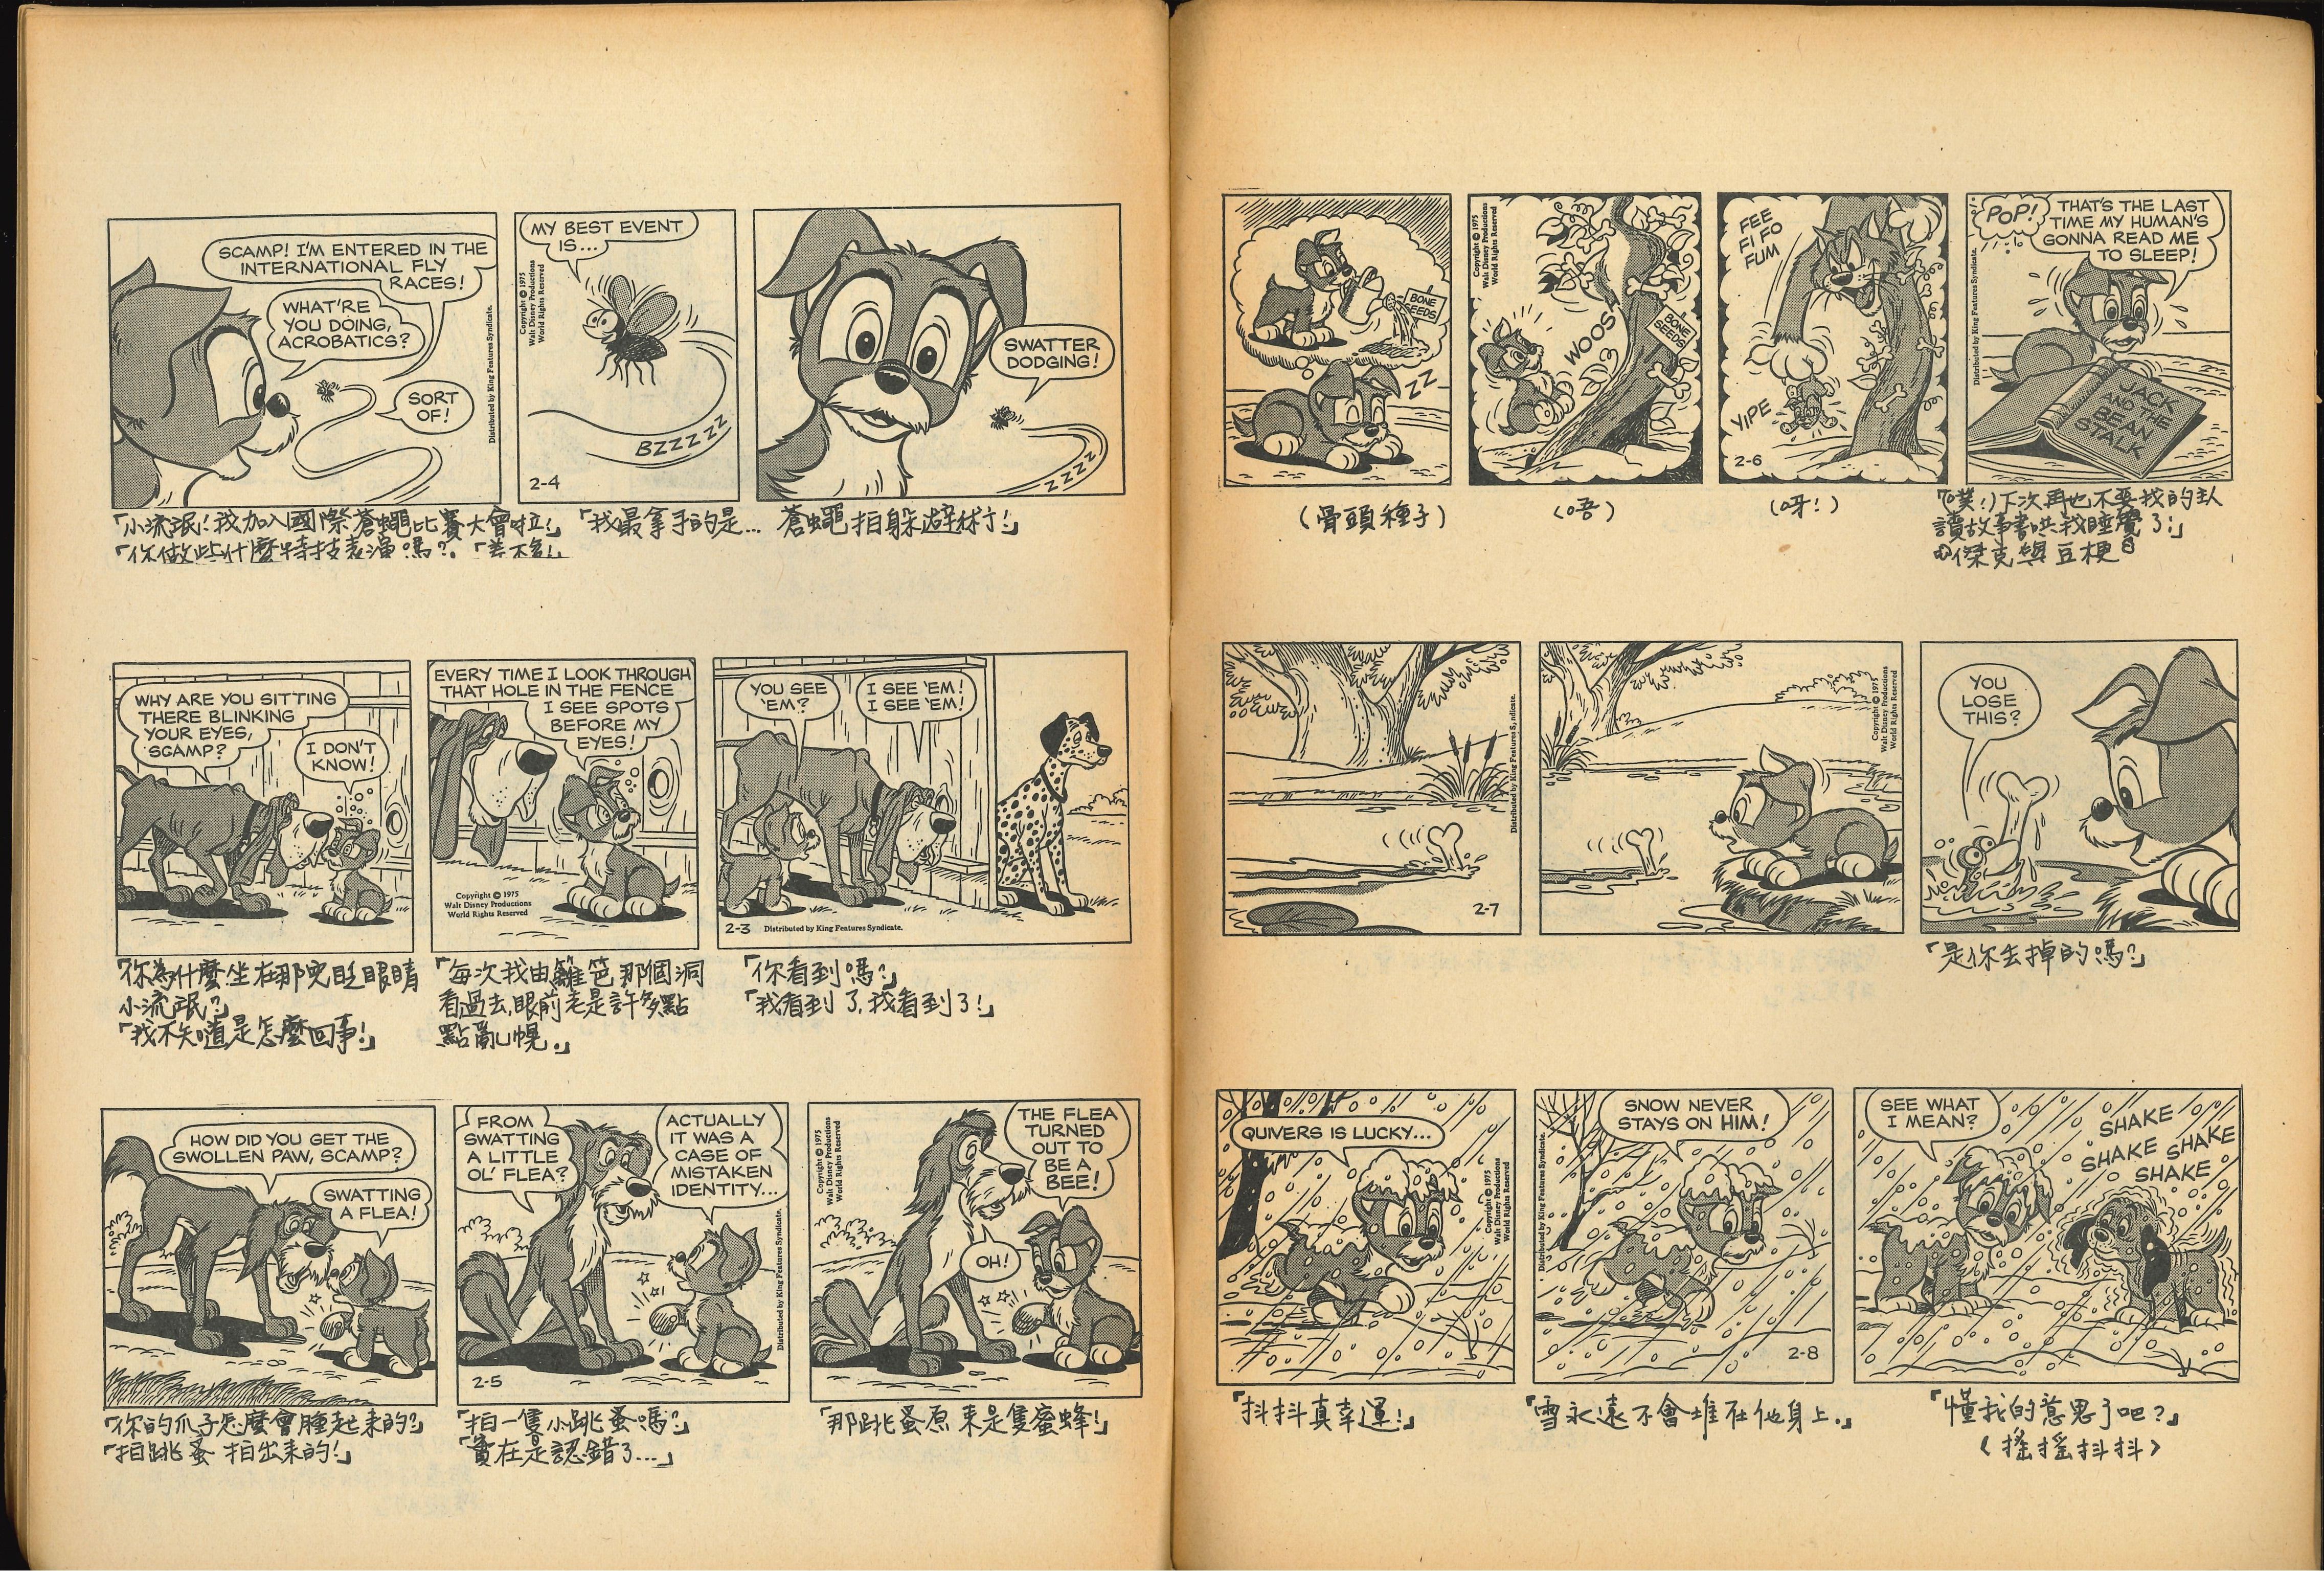 SCAMP! I'M ENTERED IN THE
INTERNATIONAL FLY
RACES!
WHAT'RE
YOU DOING,
ACROBATICS?
SORT
OF!
Distributed by King Features Syndicate.
MY BEST EVENT
IS...
Copyright © 1975
Walt Disney Productions
World Rights Reserved
BZZZZZ
2-4
SWATTER
DODGING!
ZZZZ
「小流氓!我加入國際蒼蠅比賽大會啦!」
「你做些什麼特技表演嗎?」「差不多!」
「我最拿手的是...
蒼蠅拍躲避術!」
WHY ARE YOU SITTING
THERE BLINKING
YOUR EYES,
SCAMP?
I DON'T
KNOW!
EVERY TIME I LOOK THROUGH
THAT HOLE IN THE FENCE
I SEE SPOTS
BEFORE MY
EYES!
Copyright © 1975
Walt Disney Productions
World Rights Reserved
YOU SEE
'EM?
I SEE 'EM!
I SEE 'EM!
2-3 Distributed by King Features Syndicate.
「你為什麼坐在那兒眨眼睛
小流氓?」
「我不知道是怎麼回事!」
「每次我由籬笆那個洞
看過去,眼前老是許多點
點亂幌.」
「你看到嗎?」
「我看到了,我看到了!」
HOW DID YOU GET THE
SWOLLEN PAW, SCAMP?
SWATTING
A FLEA!
FROM
SWATTING
A LITTLE
OL' FLEA?
ACTUALLY
IT WAS A
CASE OF
MISTAKEN
IDENTITY...
Distributed by King Features Syndicate.
2-5
Copyright © 1975
Walt Disney Productions
World Rights Reserved
THE FLEA
TURNED
OUT TO
BE A
BEE!
OH!
「你的爪子怎麼會腫起來的?」
「拍跳蚤拍出來的!」
「拍一隻小跳蚤嗎?」
「實在是認錯了...」
「那跳蚤原來是隻蜜蜂!」
BONE
SEEDS
ZZ
Copyright © 1975
Walt Disney Productions
World Rights Reserved
WOOSH
BONE
SEEDS
FEE
FI FO
FUM
YIPE
2-6
POP!
THAT'S THE LAST
TIME MY HUMAN'S
GONNA READ ME
TO SLEEP!
Distributed by King Features Syndicate.
JACK
AND THE
BEAN
STALK
(骨頭種子)
(唔)
(呀!)
下次再也不要我的
讀故事書哄我睡覺了!」
傑克與豆梗
Distributed by King Features Syndicate.
2-7
Copyright © 1975
Walt Disney Productions
World Rights Reserved
YOU
LOSE
THIS?
「是你丟掉的嗎?」
QUIVERS IS LUCKY...
Copyright © 1975
Walt Disney Productions
World Rights Reserved
SNOW NEVER
STAYS ON HIM!
Distributed by King Features Syndicate.
2-8
SEE WHAT
I MEAN?
SHAKE
SHAKE SHAKE
SHAKE
「抖抖真幸運!」
「雪永遠不會堆在他身上.」
「懂我的意思了吧?」
〈搖搖抖抖〉